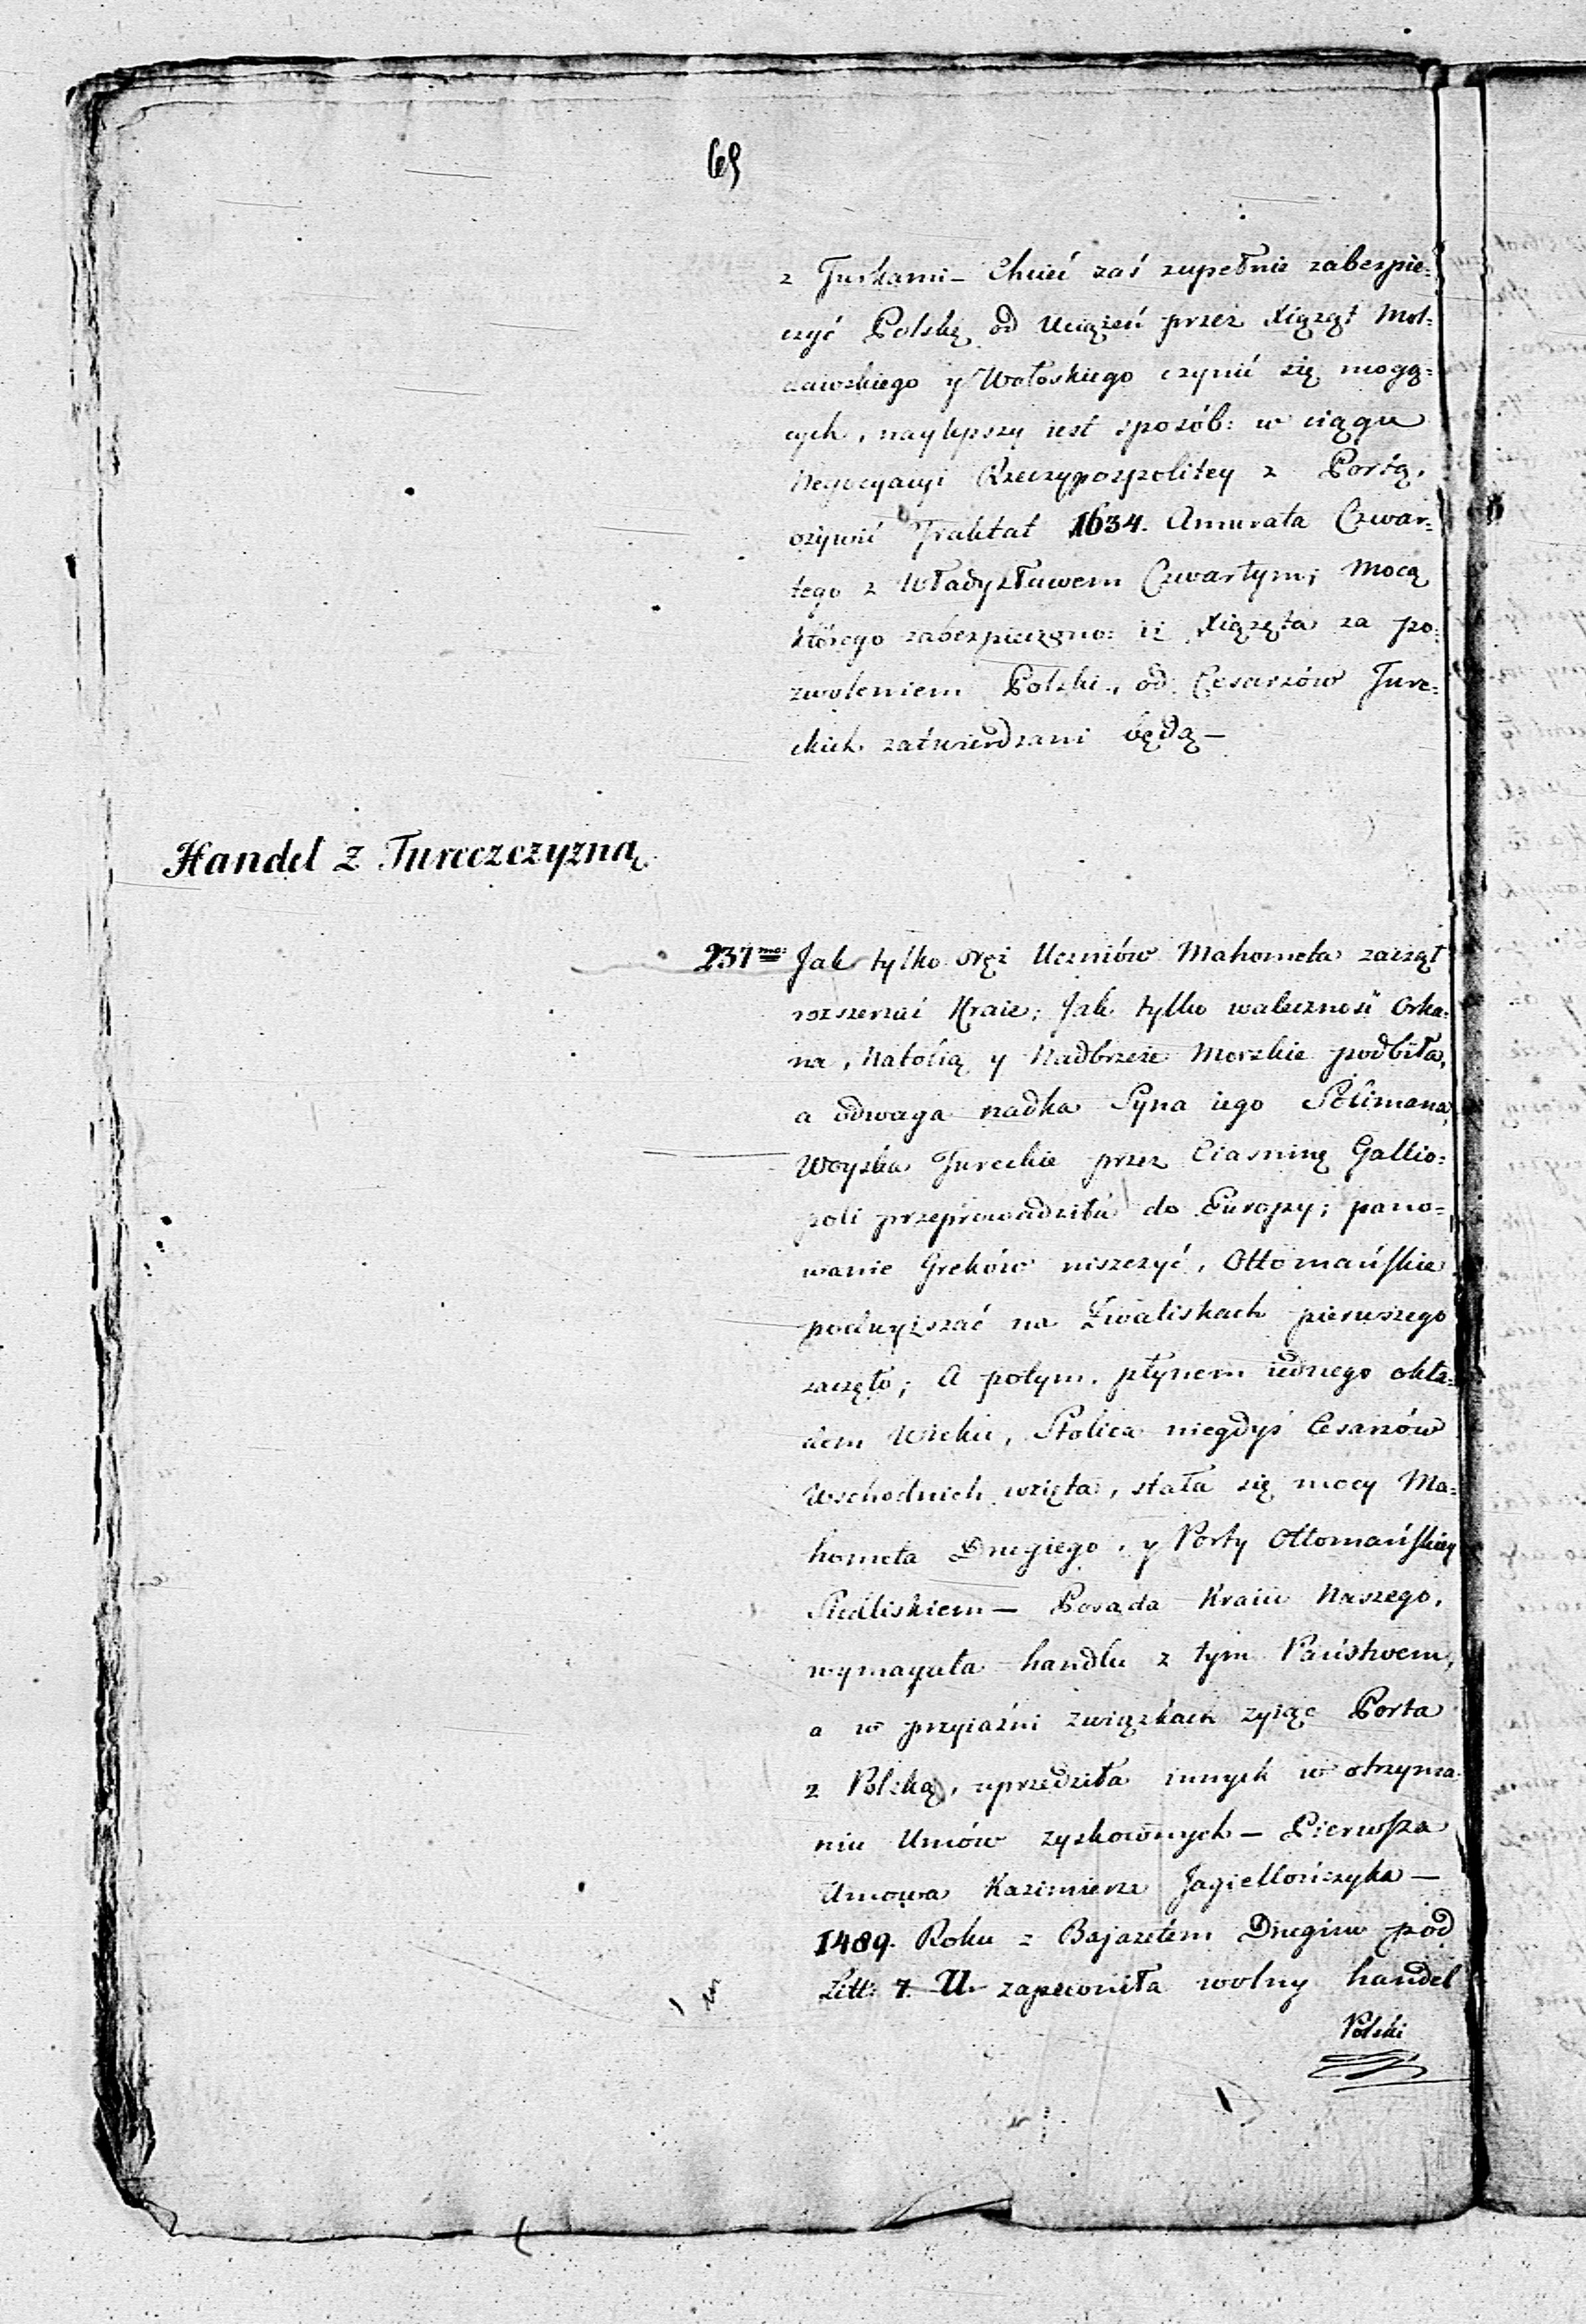 69
z Turkami — Chcieć zaś zupełnie zabezpie=
czyć Polskę od Uciążeń przez Xiążąt Moł=
dawskiego y Wołoskiego czynić się mogą=
cych, naylepszy iest sposób: w ciągu
Negocyacyi Rzeczypospolitey z Portą,
ożywić Traktat 1634. Amurata Czwar=
tego z Władysławem Czwartym; Mocą
którego zabezpieczono: iż Xiążęta za po=
zwoleniem Polski, od Cesarzów Ture=
ckich zatwierdzani będą —
Handel z Tureczczyzną
237mo: Jak tylko oręż Uczniów Mahometa zaczął
rozszerzać Kraie; Jak tylko waleczność Orka=
na, Natolią y Nadbrzeże Morskie podbiła,
a odwaga rzadka Syna iego Solimana,
Woyska Tureckie przez Ciasninę Gallio=
poli przeprowadziła do Europy; pano=
wanie Greków niszczyć, Ottomańskie
podwyższać na Zwaliskach pierwszego
zaczęło; A potym, płynem iednego okła=
dem Wieku, Stolica niegdyś Cesarzów
Wschodnich wzięta, stała się mocy Ma=
hometa Drugiego, y Porty Ottomańskiey
Siedliskiem — Posada Kraiu Naszego,
wymagała handlu z tym Państwem,
a w przyiaźni związkach żyiąc Porta
z Polską, uprzedziła innych w otrzyma=
niu Umów zyskownych — Pierwsza
Umowa Kazimierza Jagiellończyka —
1489. Roku z Bajazetem Drugim pod
Litt: 7. U. zapewniła wolny handel
Polski